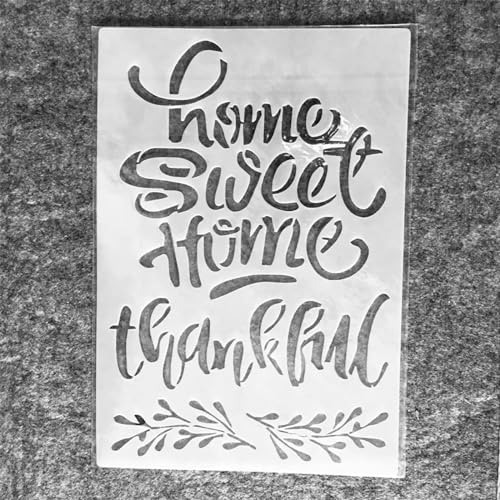 home
Sweet
Home
thankful